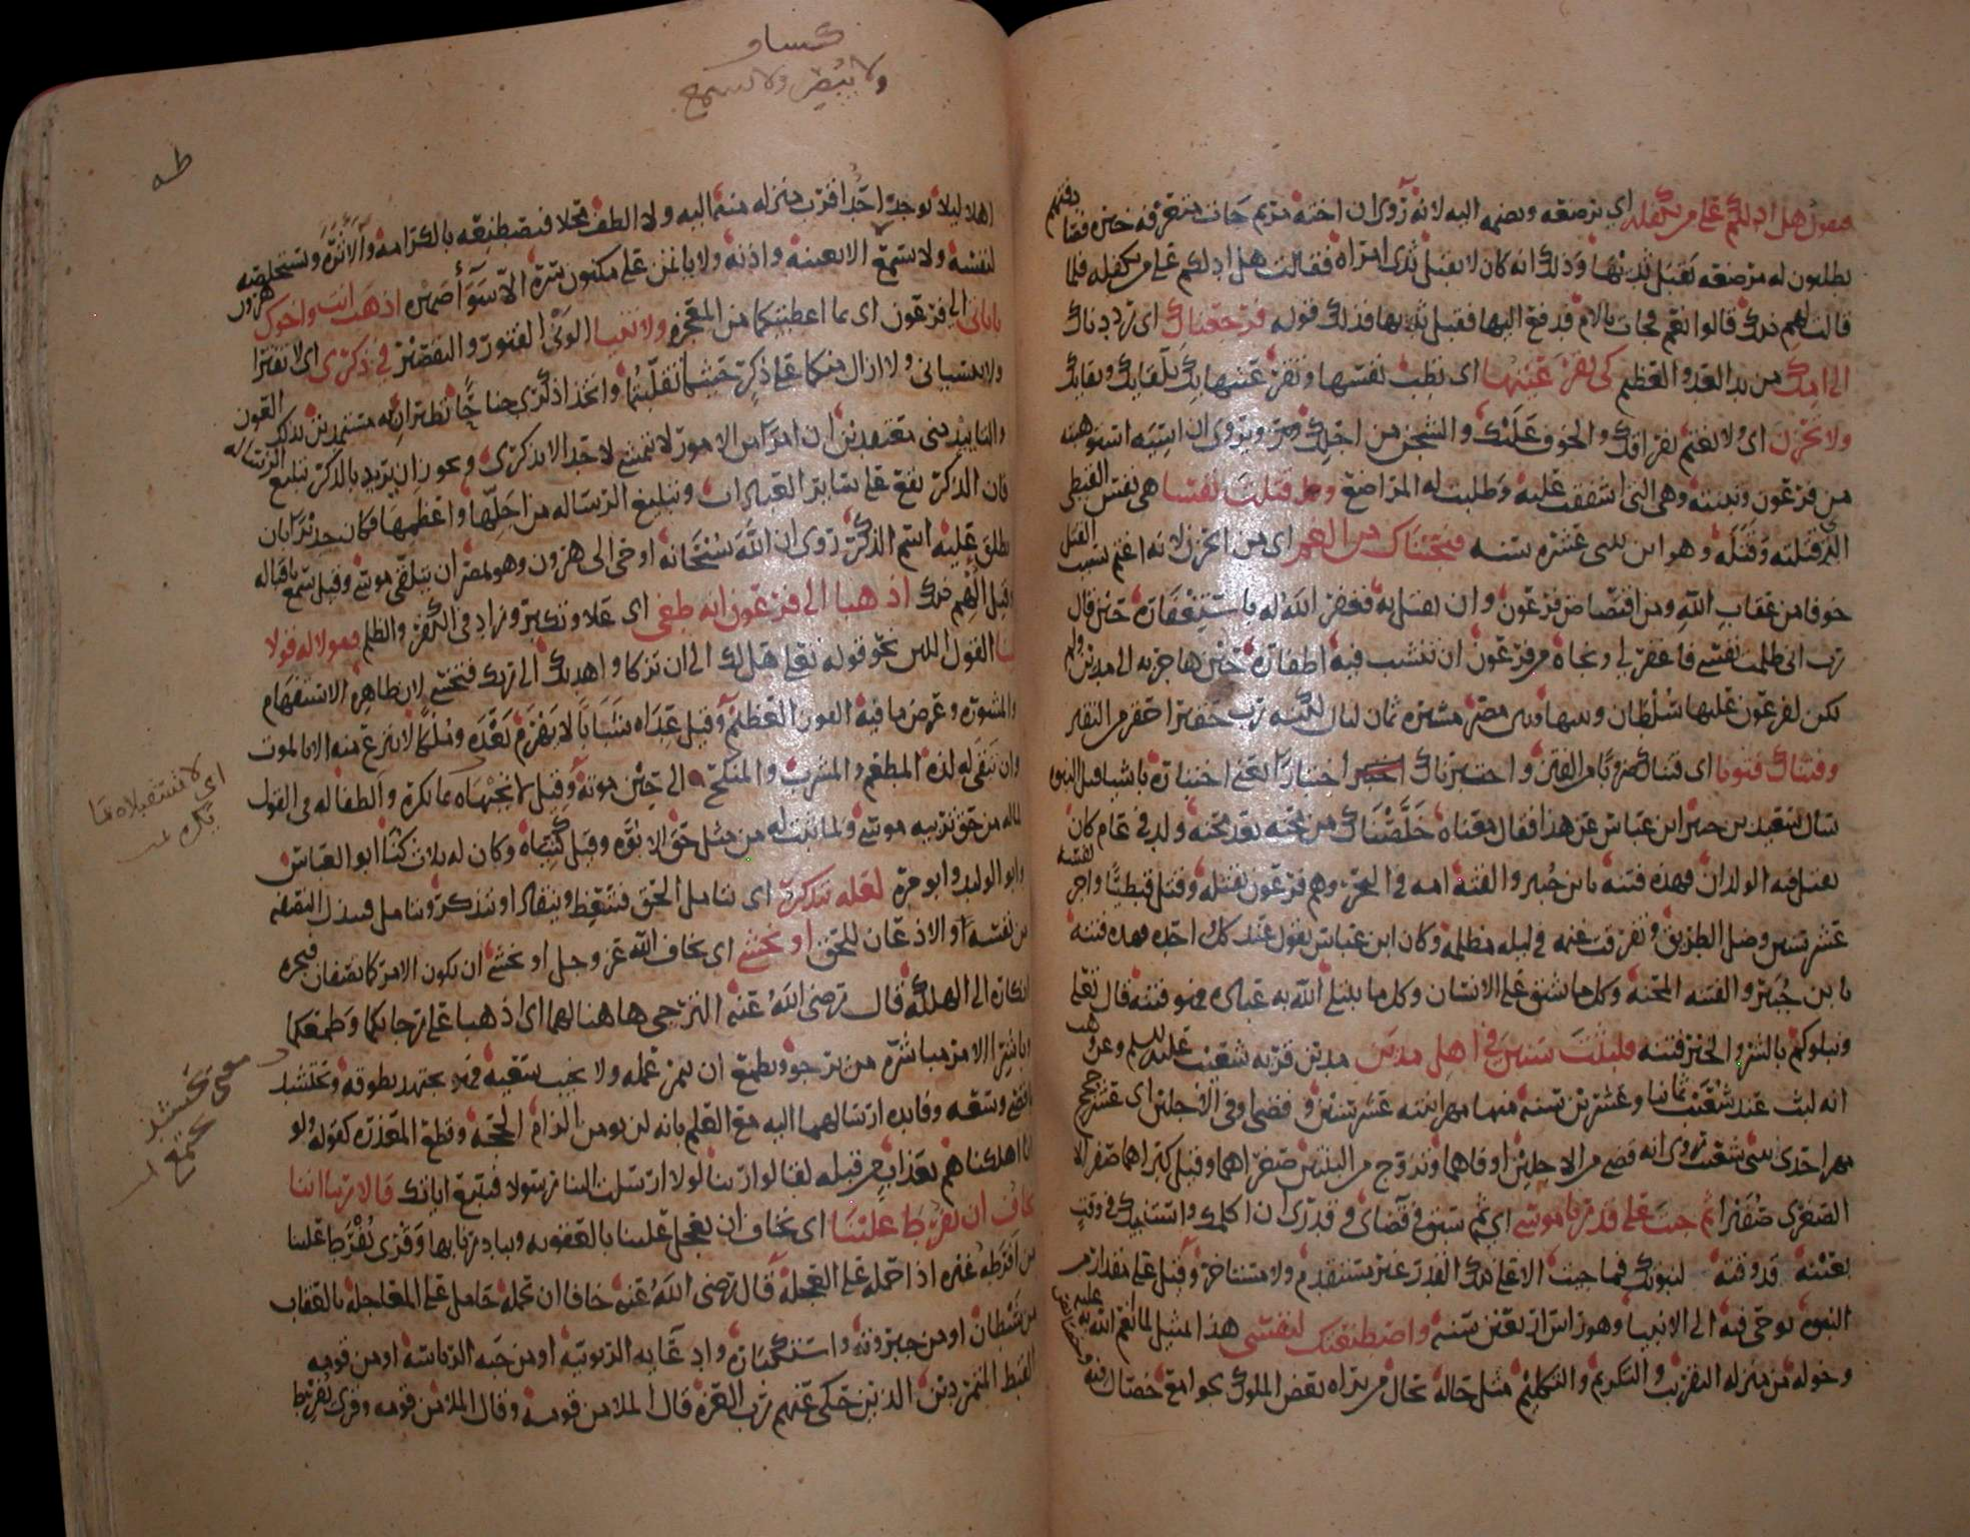 فتقول هل ادلكم على من يكفله اي يرضعه ويضمه اليه لانه روى ان اخته مريم جات متعرفه خبره فصادفتهم
يطلبون له مرضعه يقبل ثديها وذلك انه كان لا يقبل ثدى امراه فقالت هل ادلكم على من يكفله فلما
قالت لهم ذلك قالوا نعم فجات بالام فدفع اليها فقبل ثديها فذلك قوله فرجعناك اى رددناك
الى امك من يد العدو العظيم كى تقر عينها اى تطيب نفسها وتقر عينها بك بلقايك وبقايك
ولا تحزن اى ولا تغتم بفراقك والخوف عليك والشجن من اجلك ويروى ان اسيه استوهبته
من فرعون وتبنته وهى التى اشفقت عليه وطلبت له المراضع وقتلت نفسا هى نفس القبطى
الذى قتلته وقتله وهو ابن اثنتى عشره سنه فنجيناك من الغم اى من الحزن لانه اغتم بسبب القتل
خوفا من عقاب الله ومن اقتصاص فرعون وان يقتل به فغفر الله له باستغفاره حين قال
رب انى ظلمت نفسى فاغفر لى ونجاه من فرعون ان تنشب فيه اظفاره حين هاجر به الى مدين ولم
يكن لفرعون عليها سلطان وبينها وبين مصر مسيره ثمان ليال
وفتناك فتونا اى فتناك ضروبا من الفتن واختبرناك اختبارا
سال سعيد بن جبير ابن عباس عن هذا فقال معناه خلصناك من محنه بعد محنه ولد فى عام كان
يقتل فيه الولدان فهذه فتنه يا بن جبير والقته امه فى البحر وهم فرعون بقتله وقتل قبطيا واجر نفسه
عشر سنين وضل الطريق وتفرقت غنمه فى ليله مظلمه وكان ابن عباس يقول عند كل واحده فهذه فتنه
يا بن جبير والفتنه المحنه وكل ما شق على الانسان وكل ما يبتلى الله به عباده فهو فتنه قال تعالى
ونبلوكم بالشر والخير فتنه فلبثت سنين فى اهل مدين مدين قريه شعيب عليه السلم وعن وهب
انه لبث عند شعيب ثمانيا وعشرين سنه منها مهر ابنته عشر سنين وقضى اوفى الاجلين اى عشر حجج
مهر احدى ابنتى شعيب روى انه قضى من الاجلين اوفاهما وتزوج من البنتين صغراهما وقيل كبراهما صفرا
الصغرى صفيرا ثم جيت على قدر يا موسى اي ثم سبق في قضاى وقدرى ان اكلمك واستنبيك فى وقت
بعينه قد وقته لنبوتك فما جيت الا على ذلك القدر غير مستقدم ولا مستاخر وقيل على مقدار من
النبوه يوحى فيه الى الانبيا وهو راس اربعين سنه واصطنعتك لنفسى هذا المثيل لما انعم الله به عليه
وخوله من منزله التقريب والتكريم والتكليم مثل حاله بحال من يراه بعض الملوك بجوامع خصال فيه
وخصائص
كساو
ولا يبصر ولا يسمع
طه
اهلا ليلا يوجد احد اقرب منزله منه اليه ولا الطف محلا فيصطنعه بالكرامه والاثره ويستخلصه
لنفسه ولا يستمع الا بعينه واذنه ولا ياتمن على مكنون سره الا سوا ضميره اذهب انت واخوك هرون
باياتى الى فرعون اى بما اعطيتكما من المعجزه ولا تنيا الونى الفتور والتقصير فى ذكرى اى لا تفترا
ولا تنسيانى ولا ازال منكما على ذكر حيثما تقلبتما واتخذا ذكرى جناحا تطيران به مستمدين بذلك العون
والتاييد منى معتقدين ان امرا من الامور لا يتمشى لاحد الا بذكرى ويجوز ان يريد بالذكر تبليغ الرساله
فان الذكر يقع على ساير العبادات وتبليغ الرساله من اجلها واعظمها فكان جديرا بان
يطلق عليه اسم الذكر روى ان الله سبحانه اوحى الى هرون وهو بمصر ان يتلقى موسى وقيل سمع باقباله
وقيل الهم ذلك اذهبا الى فرعون انه طغى اى علا وتكبر وزاد فى الكفر والظلم فقولا له قولا
لينا القول اللين نحو قوله تعلى هل لك الى ان تزكا واهديك الى ربك فتخشى لان ظاهره الاستفهام
والمشوره وعرض ما فيه الفوز العظيم وقيل عداه شبابا لا يهرم بعده وملكا لا ينزع منه الا بالموت
وان تبقى له لذه المطعم والمشرب والمنكح الى حين موته وقيل لا تجبهاه بما يكره والطفا له فى القول
لما له من حق تربيه موسى ولما ثبت له من مثل حق الابوه وقيل كنياه وكان له ثلاث كنا ابو العباس
وابو الوليد وابو مره لعله يتذكر اى يتامل الحق فيتعظ
من نفسه او الاذعان للحق او يخشى اى يخاف الله عز وجل او يخشى ان يكون الامر كما تصفان فيجره
انكاره الى الهلكه قال رضى الله عنه الترجى هاهنا لهما اى اذهبا على رجائكما وطمعكما
وباشرا الامر مباشره من يرجو ويطمع ان يثمر عمله ولا يخيب سعيه فهو يجتهد بطوقه ويحتشد
باقصى وسعه وفايده ارسالهما اليه مع العلم بانه لن يومن الزام الحجه وقطع المعذره كقوله ولو
انا اهلكناهم بعذاب من قبله لقالوا ربنا لولا ارسلت الينا رسولا فنتبع اياتك قالا ربنا اننا
نخاف ان يفرط علينا اى نخاف ان يعجل علينا بالعقوبه ويبادرنا بها وقرى يفرط علينا
من افرطه غيره اذا حمله على العجله قال رضى الله عنه خافا ان يحمله حامل على المعاجله بالعقاب
من شيطان او من جبروته واستكباره وادعايه الربوبيه او من حبه الرياسه او من قومه
القبط المتمردين الذين حكى عنهم رب العزه قال الملا من قومه وقال الملا من قومه وقرى يفرط
اى لا تستقبلاه بما
يكره
معنى يحتشد
يجتمع